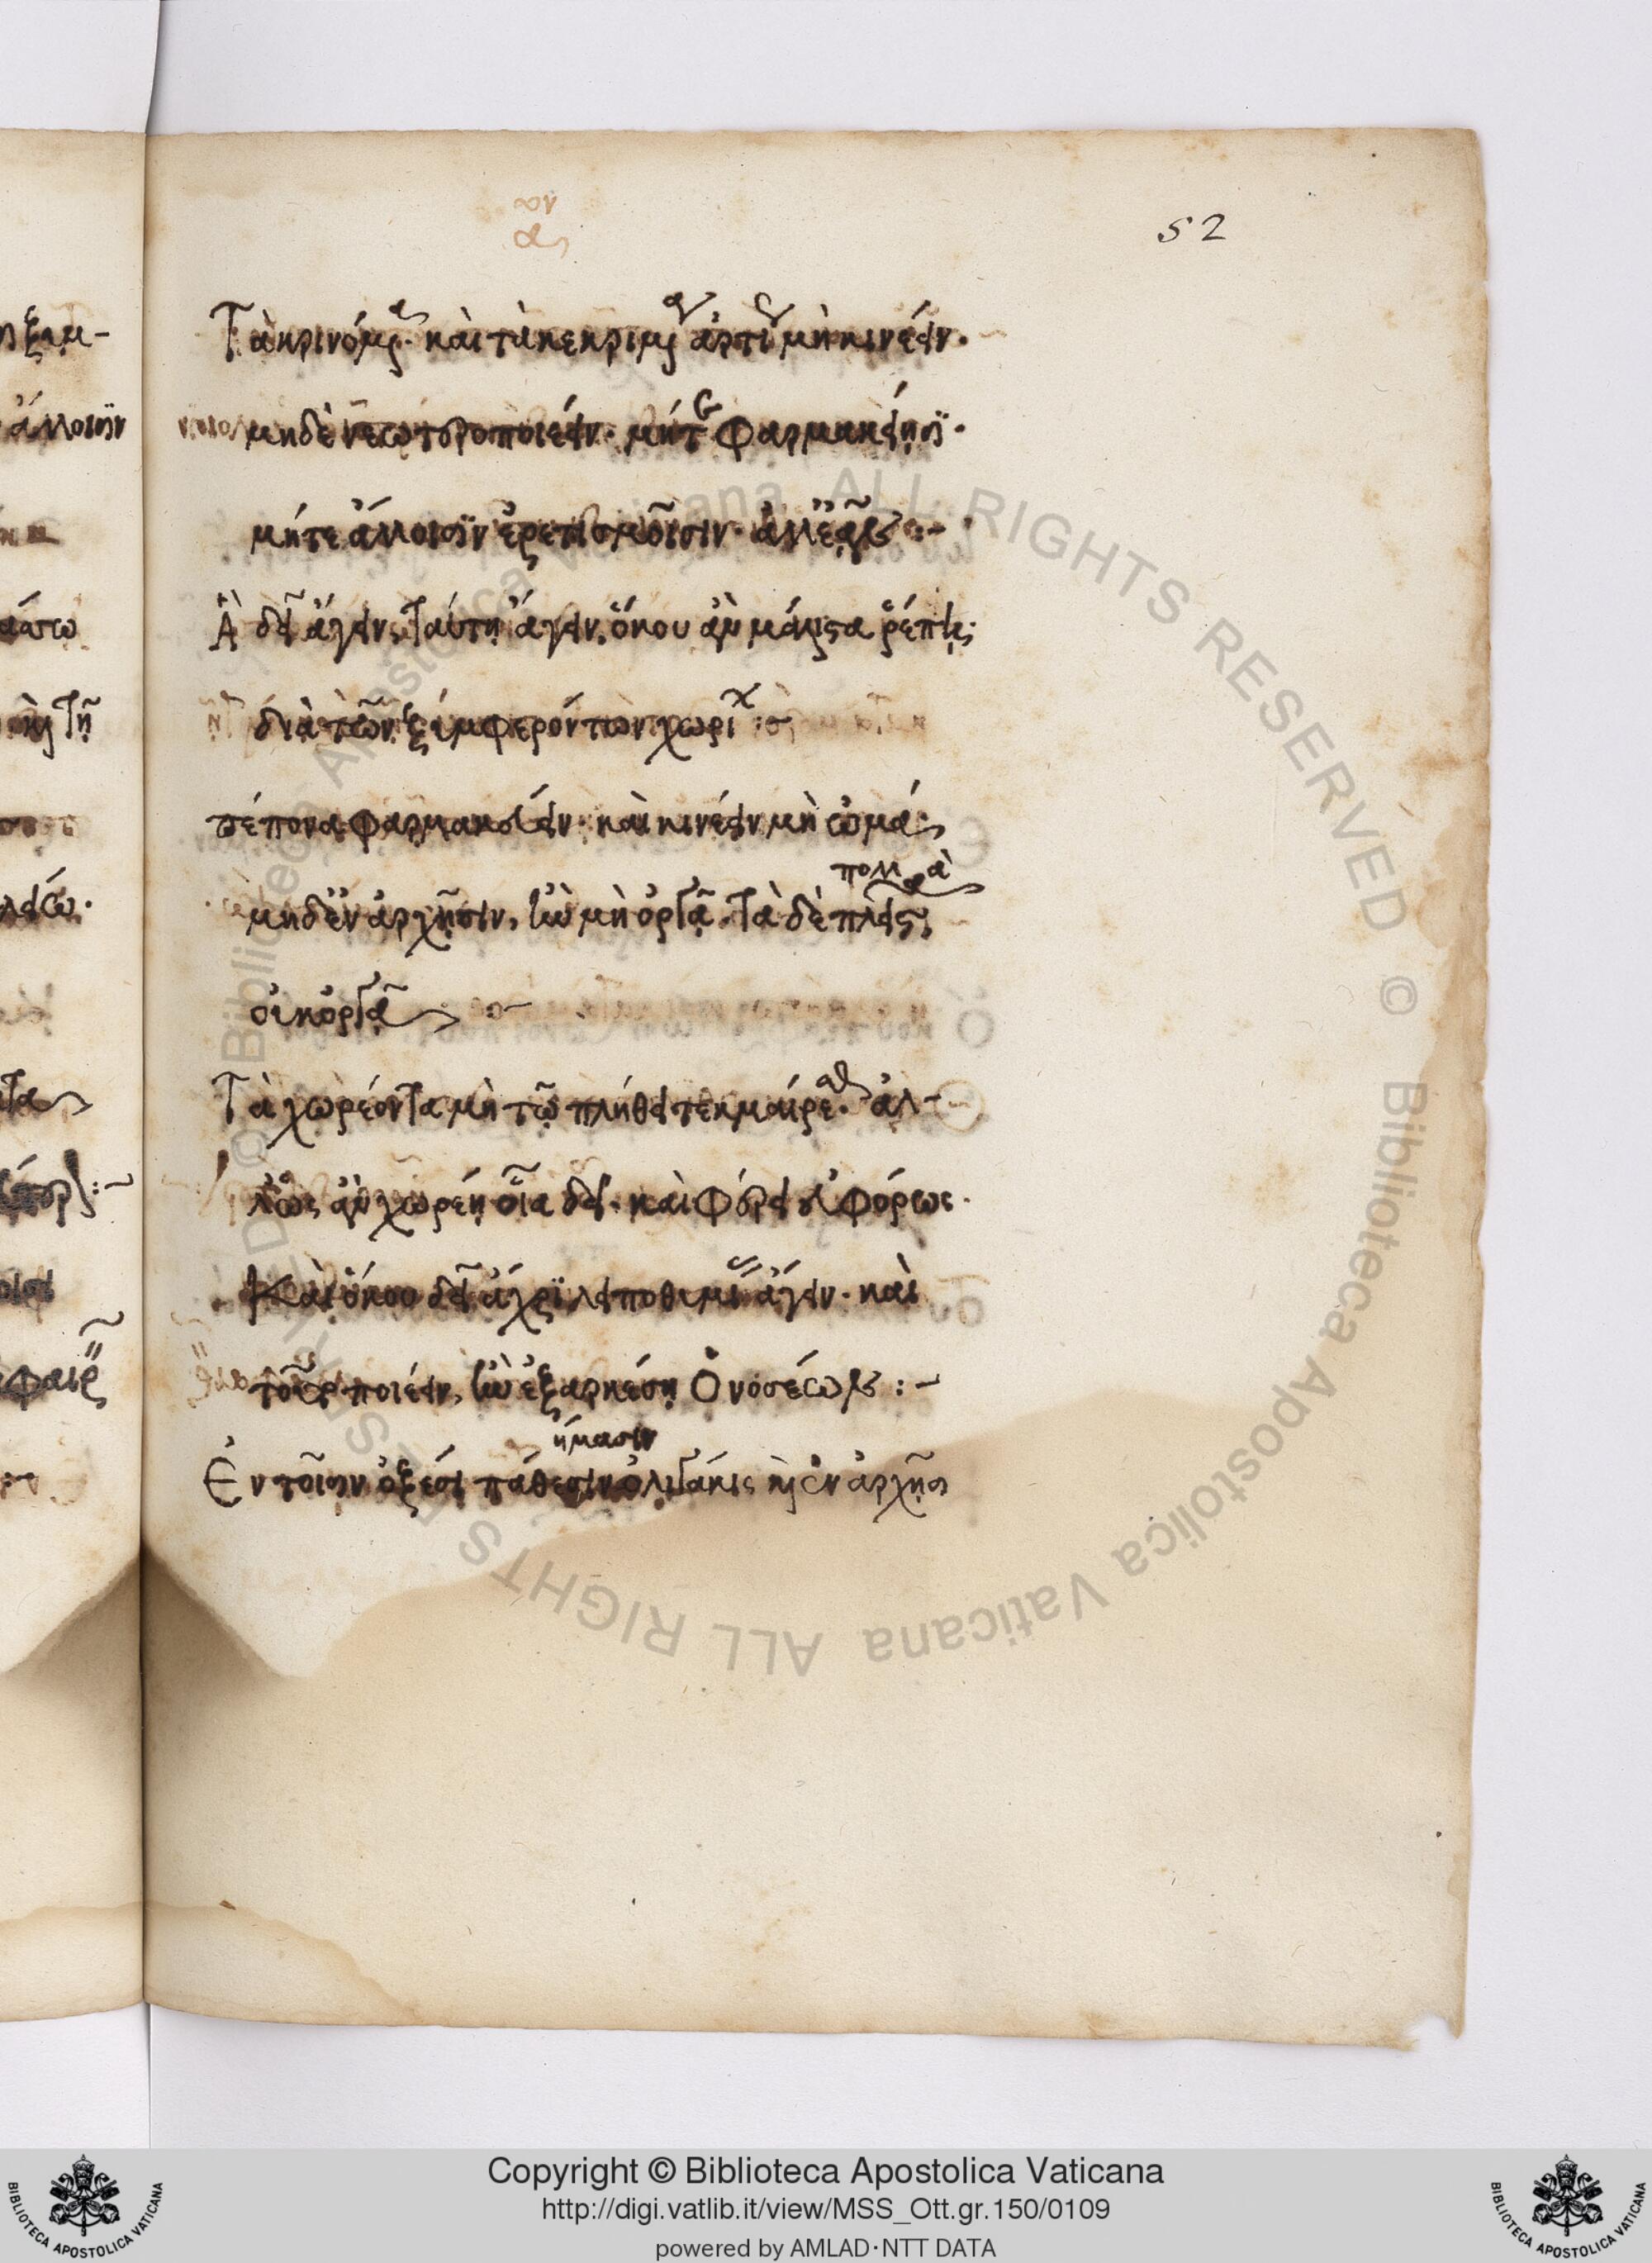 52
Τὰ κρινόμενα· καὶ τὰ κεκριμένα ἀρτίως μὴ κινέειν·
μηδὲ νεωτεροποιέειν· μήτε φαρμακείῃσι·
μήτε ἄλλοισιν ἐρεθισμοῖσιν· ἀλλ' ἐᾶν :-
Ἃ δεῖ ἄγειν, ταύτῃ ἄγειν, ὅκου ἂν μάλιστα ῥέπῃ·
διὰ τῶν ξυμφερόντων χωρί :-
πέπονα φαρμακεύειν· καὶ κινέειν μὴ ὠμά·
πολλὰ
μηδ' ἐν ἀρχῇσιν, ἢν μὴ ὀργᾷ. τὰ δὲ πλεῖστα
οὐκ ὀργᾷ :-
Τὰ χωρέοντα μὴ τῷ πλήθει τεκμαίρεσθαι· ἀλ-
λ' ὡς ἂν χωρέῃ οἷα δεῖ· καὶ φέρει εὐφόρως·
Καὶ ὅκου δεῖ ἄχρι λειποθυμίης ἄγειν· καὶ
τοῦτο ποιέειν, ἢν ἐξαρκέσῃ ὁ νοσέων :-
ήμασιν
Ἐν τοῖσιν ὀξέσι πάθεσιν ὀλιγάκις καὶ ἐν ἀρχῇσι
Copyright © Biblioteca Apostolica Vaticana
http://digi.vatlib.it/view/MSS_Ott.gr.150/0109
powered by AMLAD·NTT DATA